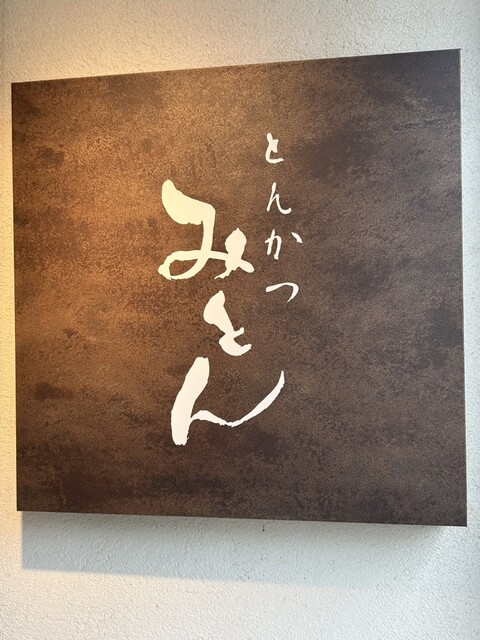 とんかつ
みとん